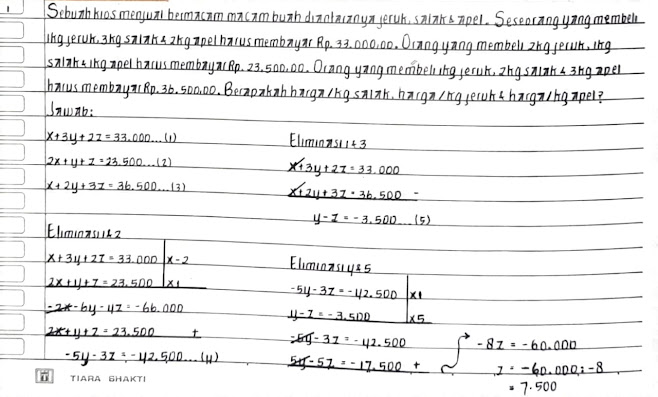 1
Sebuah kios menjual bermacam macam buah diantaranya jeruk, salak & apel. Seseorang yang membeli
1kg jeruk, 3kg salak & 2kg apel harus membayar Rp. 33.000,00. Orang yang membeli 2kg jeruk, 1kg
salak & 1kg apel harus membayar Rp. 23.500,00. Orang yang membeli 1kg jeruk, 2kg salak & 3kg apel
harus membayar Rp. 36.500,00. Berapakah harga /kg salak, harga /kg jeruk & harga /kg apel?
Jawab:
x+3y+2z = 33.000...(1)
2x+y+z = 23.500...(2)
x+2y+3z = 36.500...(3)
Eliminasi 1&2
x+3y+2z = 33.000 | x-2
2x+y+z = 23.500 | x1
-2x-6y-4z = -66.000
2x+y+z = 23.500 +
-5y-3z = -42.500...(4)
Eliminasi 1&3
x+3y+2z = 33.000
x+2y+3z = 36.500 -
y-z = -3.500...(5)
Eliminasi 4&5
-5y-3z = -42.500 | x1
y-z = -3.500 | x5
-5y-3z = -42.500
5y-5z = -17.500 +
-8z = -60.000
z = -60.000 : -8
= 7.500
TIARA BHAKTI